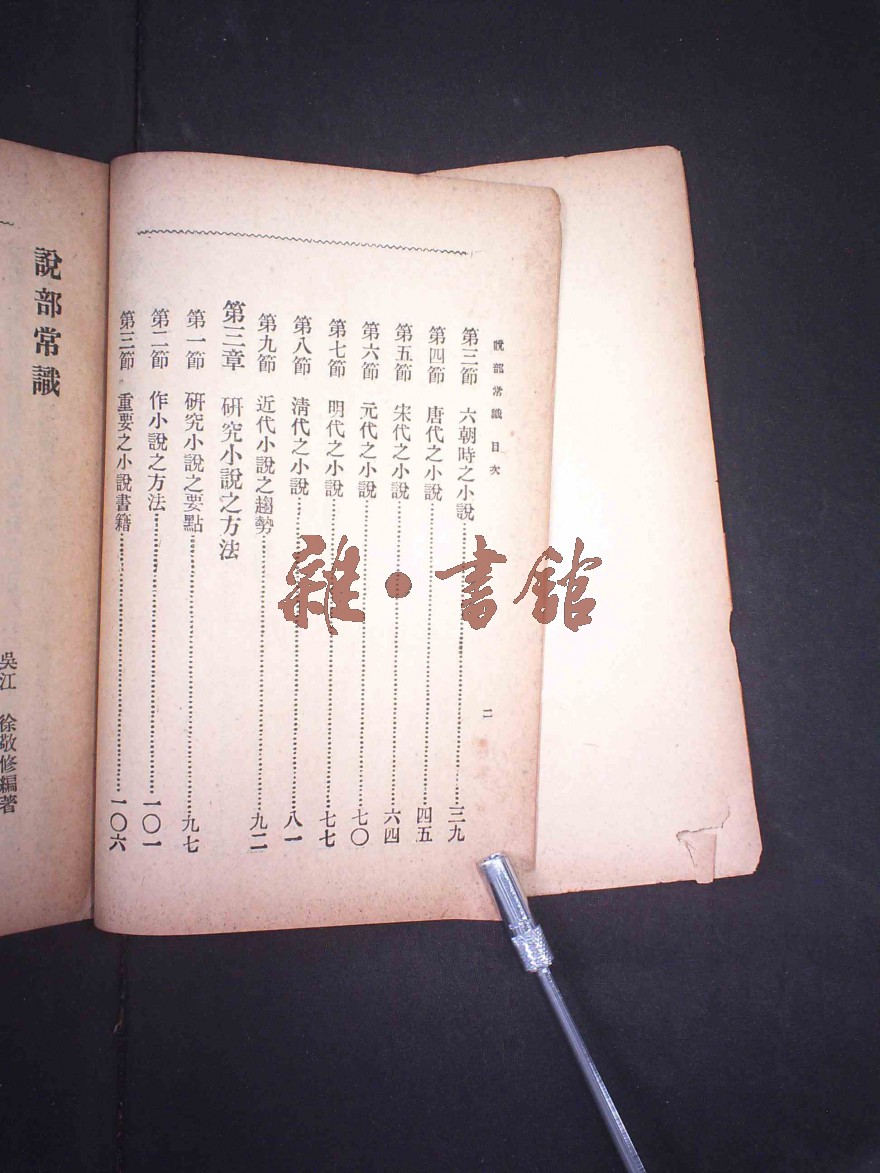 說部常識 目次
二
第三節 六朝時之小說……三九
第四節 唐代之小說……四五
第五節 宋代之小說……六四
第六節 元代之小說……七〇
第七節 明代之小說……七七
第八節 清代之小說……八一
第九節 近代小說之趨勢……九二
第三章 研究小說之方法
第一節 研究小說之要點……九七
第二節 作小說之方法……一〇一
第三節 重要之小說書籍……一〇六
說部常識
吳江 徐敬修編著
雜·書館